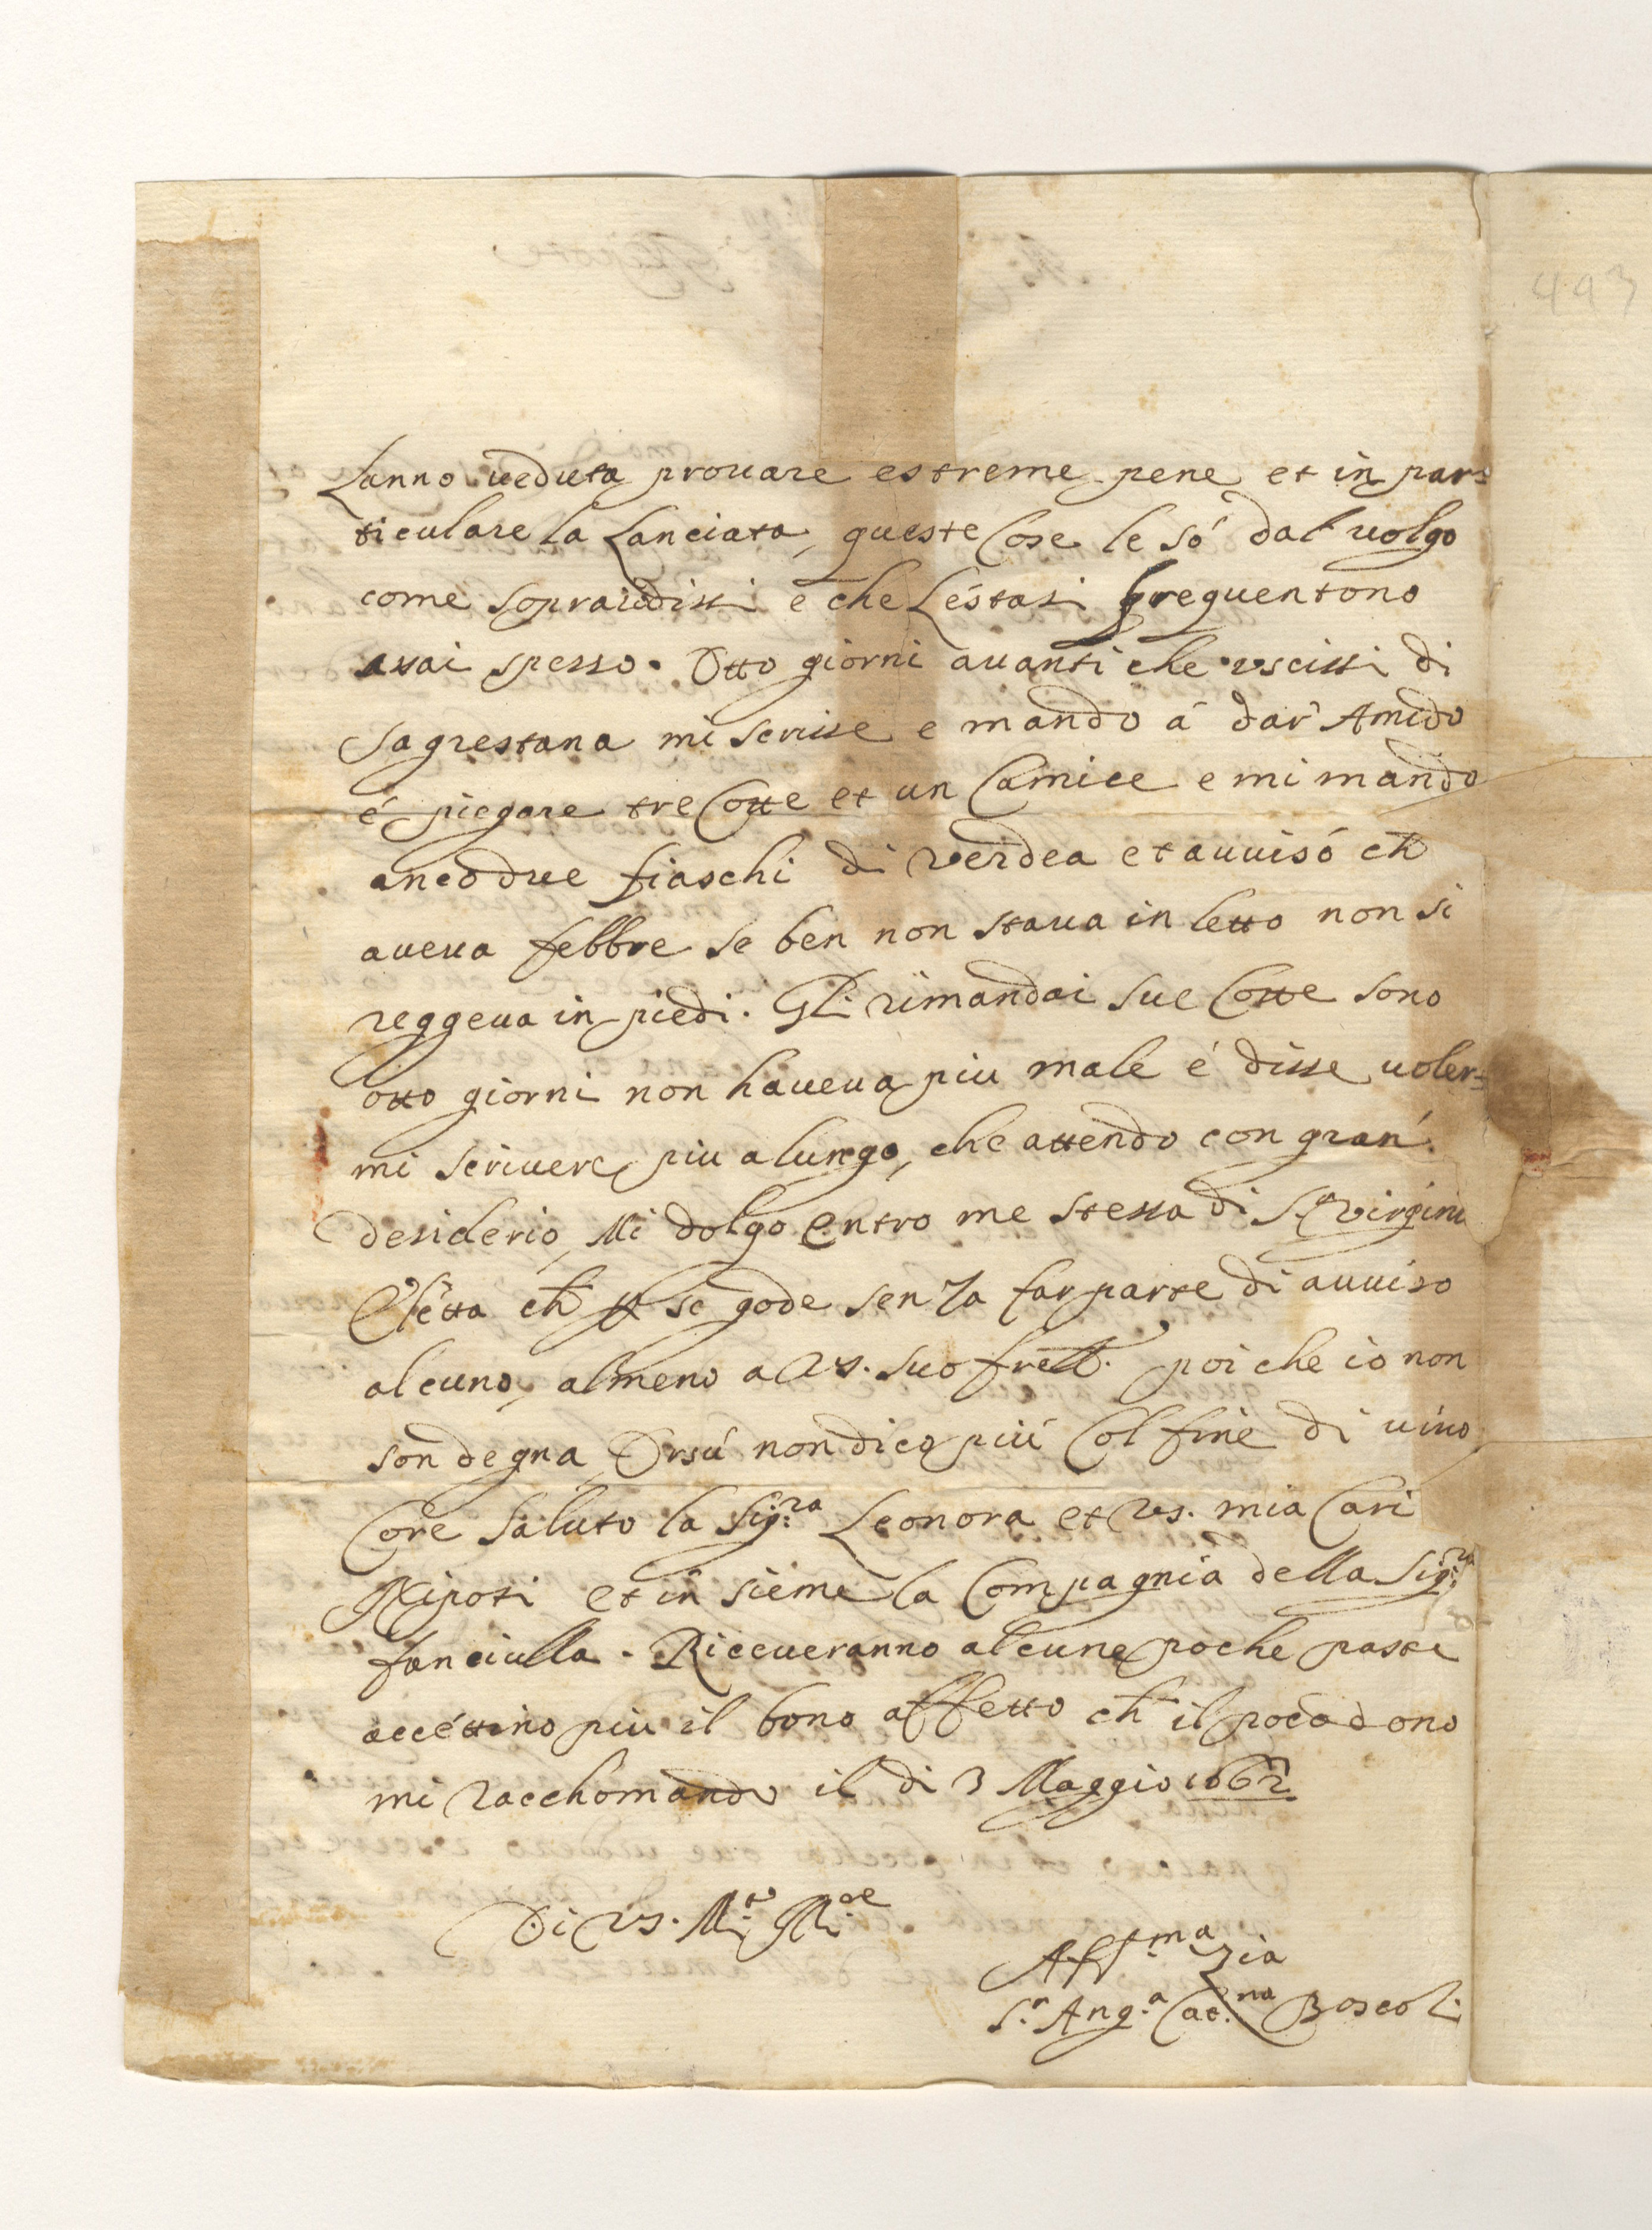 Lanno ueduta prouare estreme pene et in par=
ticulare la Lanciata, queste Cose le só dal uolgo
come sopraddissi e che Lestasi frequentono
assai spesso. Otto giorni auanti che uscissi di
Sagrestana mi scrisse e mando á dar Amido
é piegare tre Cotte et un Camice e mi mando
anco due fiaschi di verdea et auuisó ch
aueua febbre se ben non staua in letto non si
reggeua in piedi. Gli rimandai sue Cotte sono
otto giorni non haueua piu male é disse uoler=
mi scriuere piu a lungo, che attendo con gran
desiderio, Mi dolgo entro me stessa di Sr virginia
Eletta ch se gode senza far parte di auuiso
alcuno, almeno a Vs. suo frell. poi che io non
son degna, Orsú non dico piú Col fine di uiuo
Core saluto la Sig:ra Leonora et Vs. mia Cari
Nipoti et in sieme la Compagnia della Sig:ra
fanciulla. Riceueranno alcune poche paste
accéttino piu il bono affetto ch il poco dono
mi racchomando il di 3 Maggio 1662
Di Vs. M:to Ill:re
Aff:ma Zia
S.r Ang.a Cat:na Boscoli
493